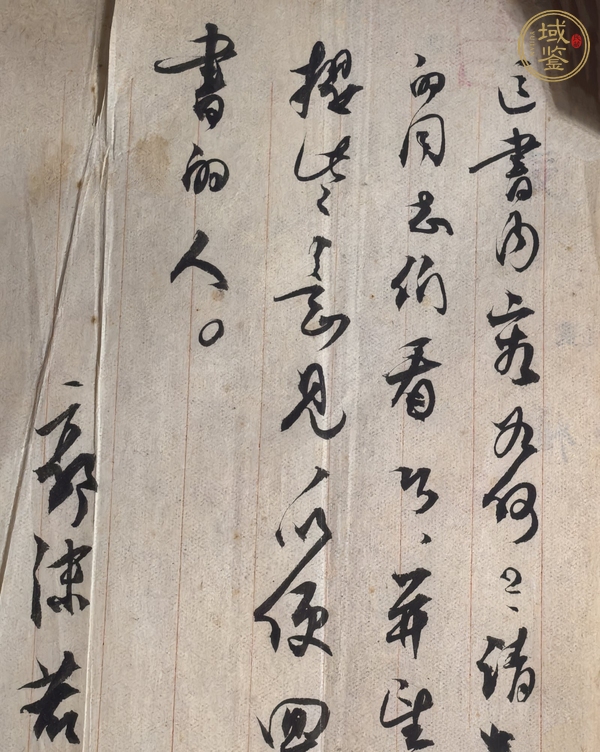 書内容如何？請
的同志们看看，并望
提些意見，以便回
書的人。
郭沫若
域鉴